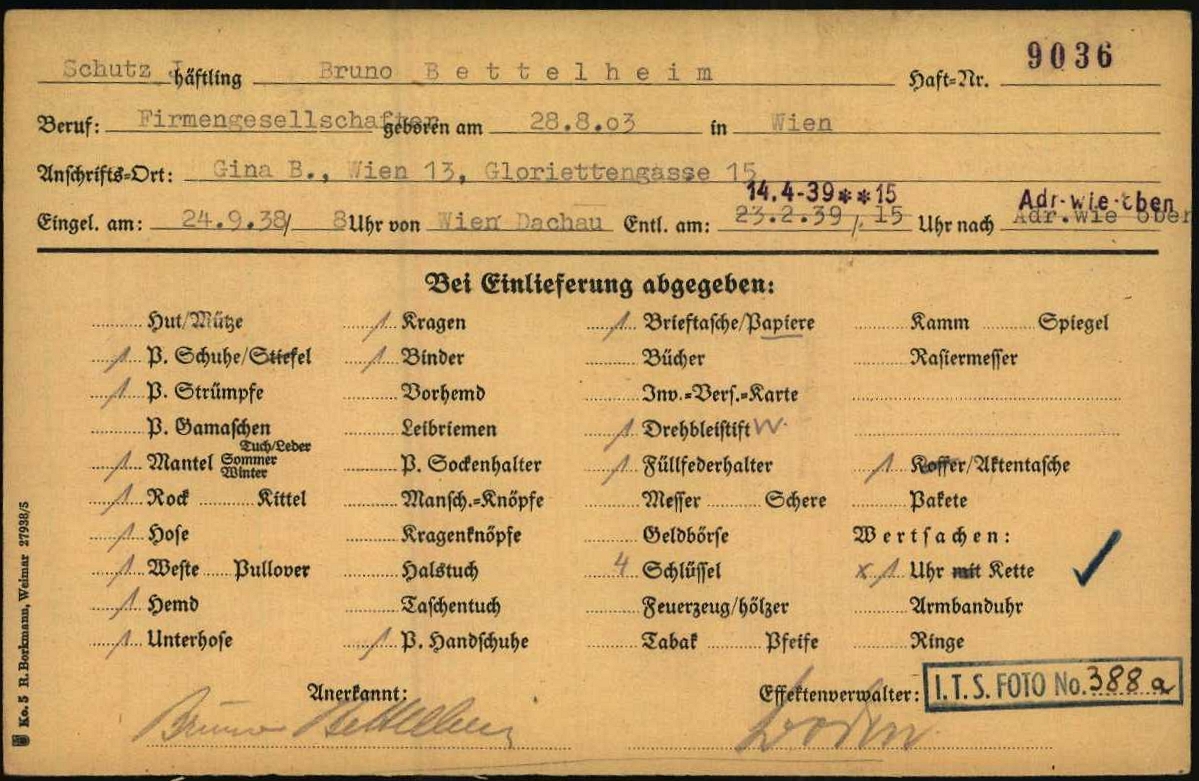 Schutz J häftling Bruno Bettelheim Haft-Nr. 9036
Beruf: Firmengesellschafter geboren am 28.8.03 in Wien
Anschrifts-Ort: Gina B., Wien 13, Gloriettengasse 15
14.4-39**15 Adr-wie-oben
Eingel. am: 24.9.38/ 8 Uhr von Wien Dachau Entl. am: 23.2.39/. 15 Uhr nach Adr. wie oben
Bei Einlieferung abgegeben:
Hut/Mütze / Kragen / Brieftasche/Papiere Kamm Spiegel
/ P. Schuhe/Stiefel / Binder Bücher Rasiermesser
/ P. Strümpfe Vorhemd Inv.=Vers.=Karte
P. Gamaschen Leibriemen / Drehbleistift W.
/ Mantel Tuch/Leder Sommer Winter P. Sockenhalter / Füllfederhalter / Koffer/Aktentasche
/ Rock Kittel Mansch.=Knöpfe Messer Schere Pakete
/ Hose Kragenknöpfe Geldbörse Wertsachen:
/ Weste Pullover Halstuch 4 Schlüssel x / Uhr mit Kette
/ Hemd Taschentuch Feuerzeug/hölzer Armbanduhr
/ Unterhose / P. Handschuhe Tabak Pfeife Ringe
Anerkannt: Effektenverwalter: I.T.S. FOTO No. 388 a
Bruno Bettelheim
Ko. 5 R. Borkmann, Weimar 27938/5